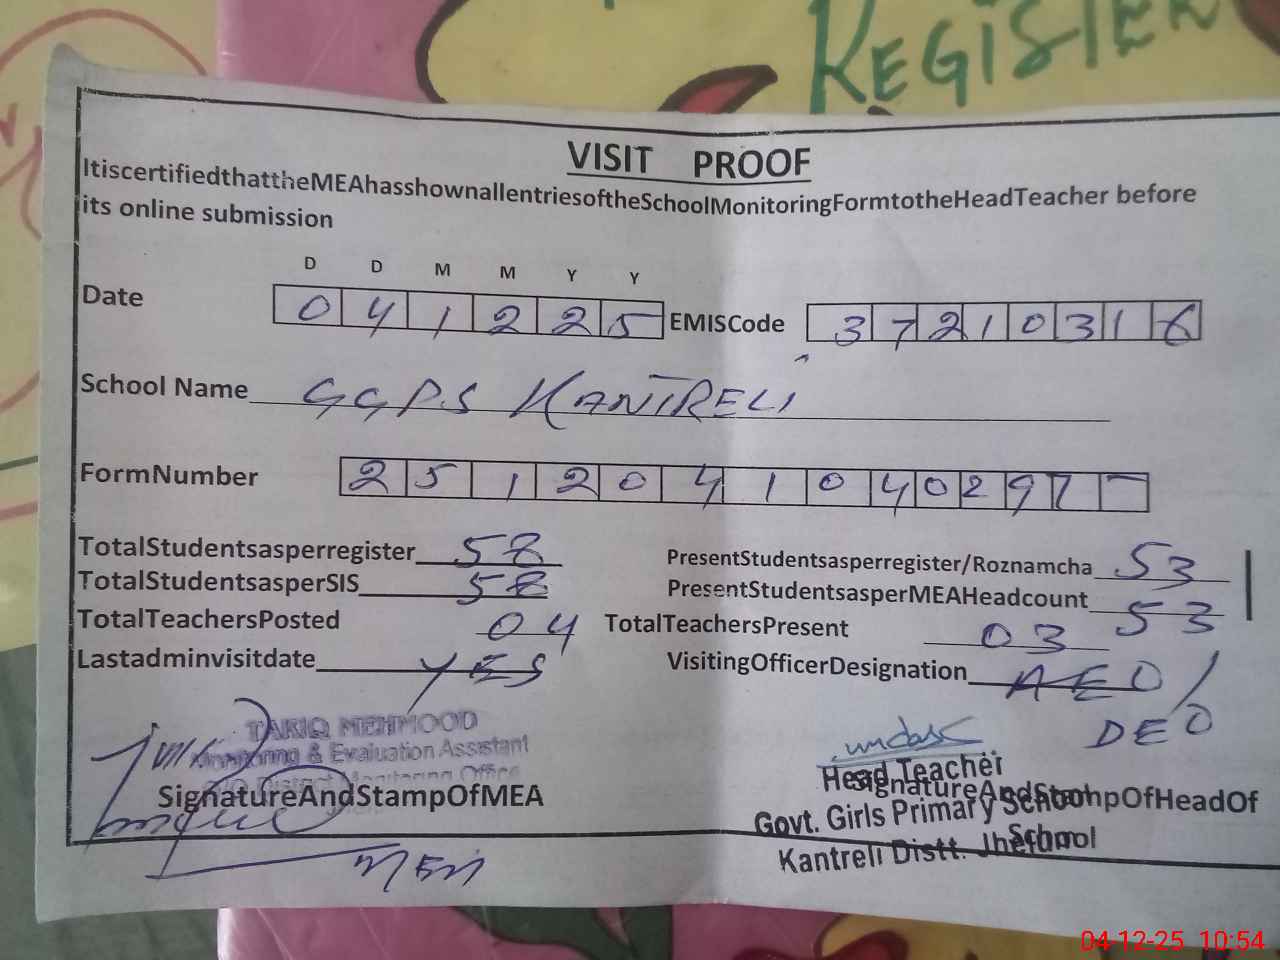 REGISTER
VISIT PROOF
ItiscertifiedthattheMEAhasshownallentriesoftheSchoolMonitoringFormtotheHeadTeacher before
its online submission
D D M M Y Y
Date 0 4 1 2 2 5 EMISCode 3 7 2 1 0 3 1 6
School Name GGPS KANTRELI
FormNumber 2 5 1 2 0 4 1 0 4 0 2 9 7
TotalStudentsasperregister 58 PresentStudentsasperregister/Roznamcha 53
TotalStudentsasperSIS 58 PresentStudentsasperMEAHeadcount 53
TotalTeachersPosted 04 TotalTeachersPresent 03
Lastadminvisitdate YES VisitingOfficerDesignation AEO/
DEO
TARIQ MEHMOOD
Monitoring & Evaluation Assistant
District Monitoring Office
SignatureAndStampOfMEA
MEA
Head Teacher
SignatureAndStampOfHeadOf
Govt. Girls Primary School
School
Kantreli Distt. Jhelum
04-12-25 10:54